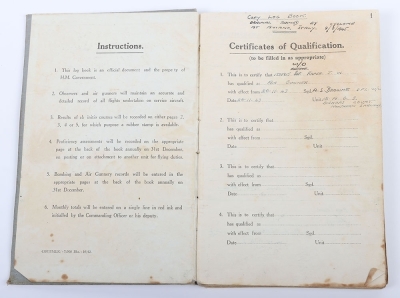 Instructions.
1. This log book is an official document and the property of
H.M. Government.
2. Observers and air gunners will maintain an accurate and
detailed record of all flights undertaken in service aircraft.
3. Results of ab initio courses will be recorded on either pages 2,
3, 4 or 5, for which purpose a rubber stamp is available.
4. Proficiency assessments will be recorded on the appropriate
page at the back of the book annually on 31st December,
on posting or on attachment to another unit for flying duties.
5. Bombing and Air Gunnery records will be entered in the
appropriate pages at the back of the book annually on
31st December.
6. Monthly totals will be entered on a single line in red ink and
initialled by the Commanding Officer or his deputy.
1
COPY LOG BOOK
Certificates of Qualification.
(to be filled in as appropriate)
1. This is to certify that
has qualified as
with effect from Sgd.
Date Unit
2. This is to certify that
has qualified as
with effect from Sgd.
Date Unit
3. This is to certify that
has qualified as
with effect from Sgd.
Date Unit
4. This is to certify that
has qualified as
with effect from Sgd.
Date Unit